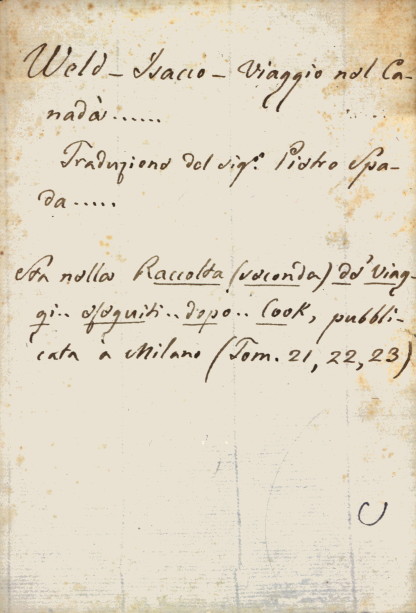 Weld - Isacco - Viaggio nel Ca-
nadà......
Traduzione del sigr. Pietro Spa-
da.....
Sta nella Raccolta (seconda) de' Viag-
gi.. eseguiti.. dopo.. Cook, pubbli-
cata a Milano (Tom. 21, 22, 23)